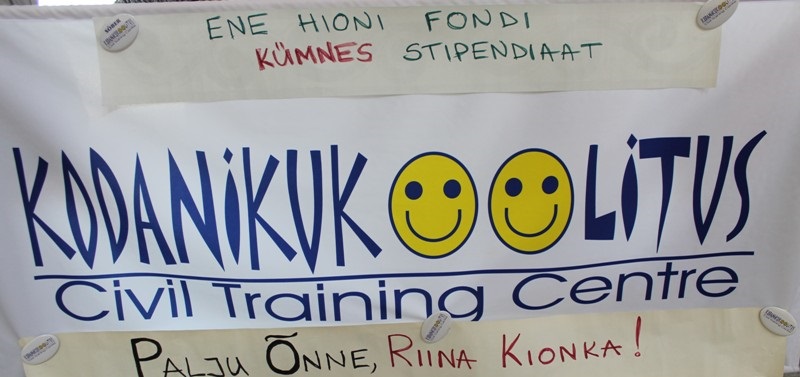 ENE HIONI FONDI
KÜMNES STIPENDIAAT
KODANIKUKOOLITUS
Civil Training Centre
PALJU ÕNNE, RIINA KIONKA!